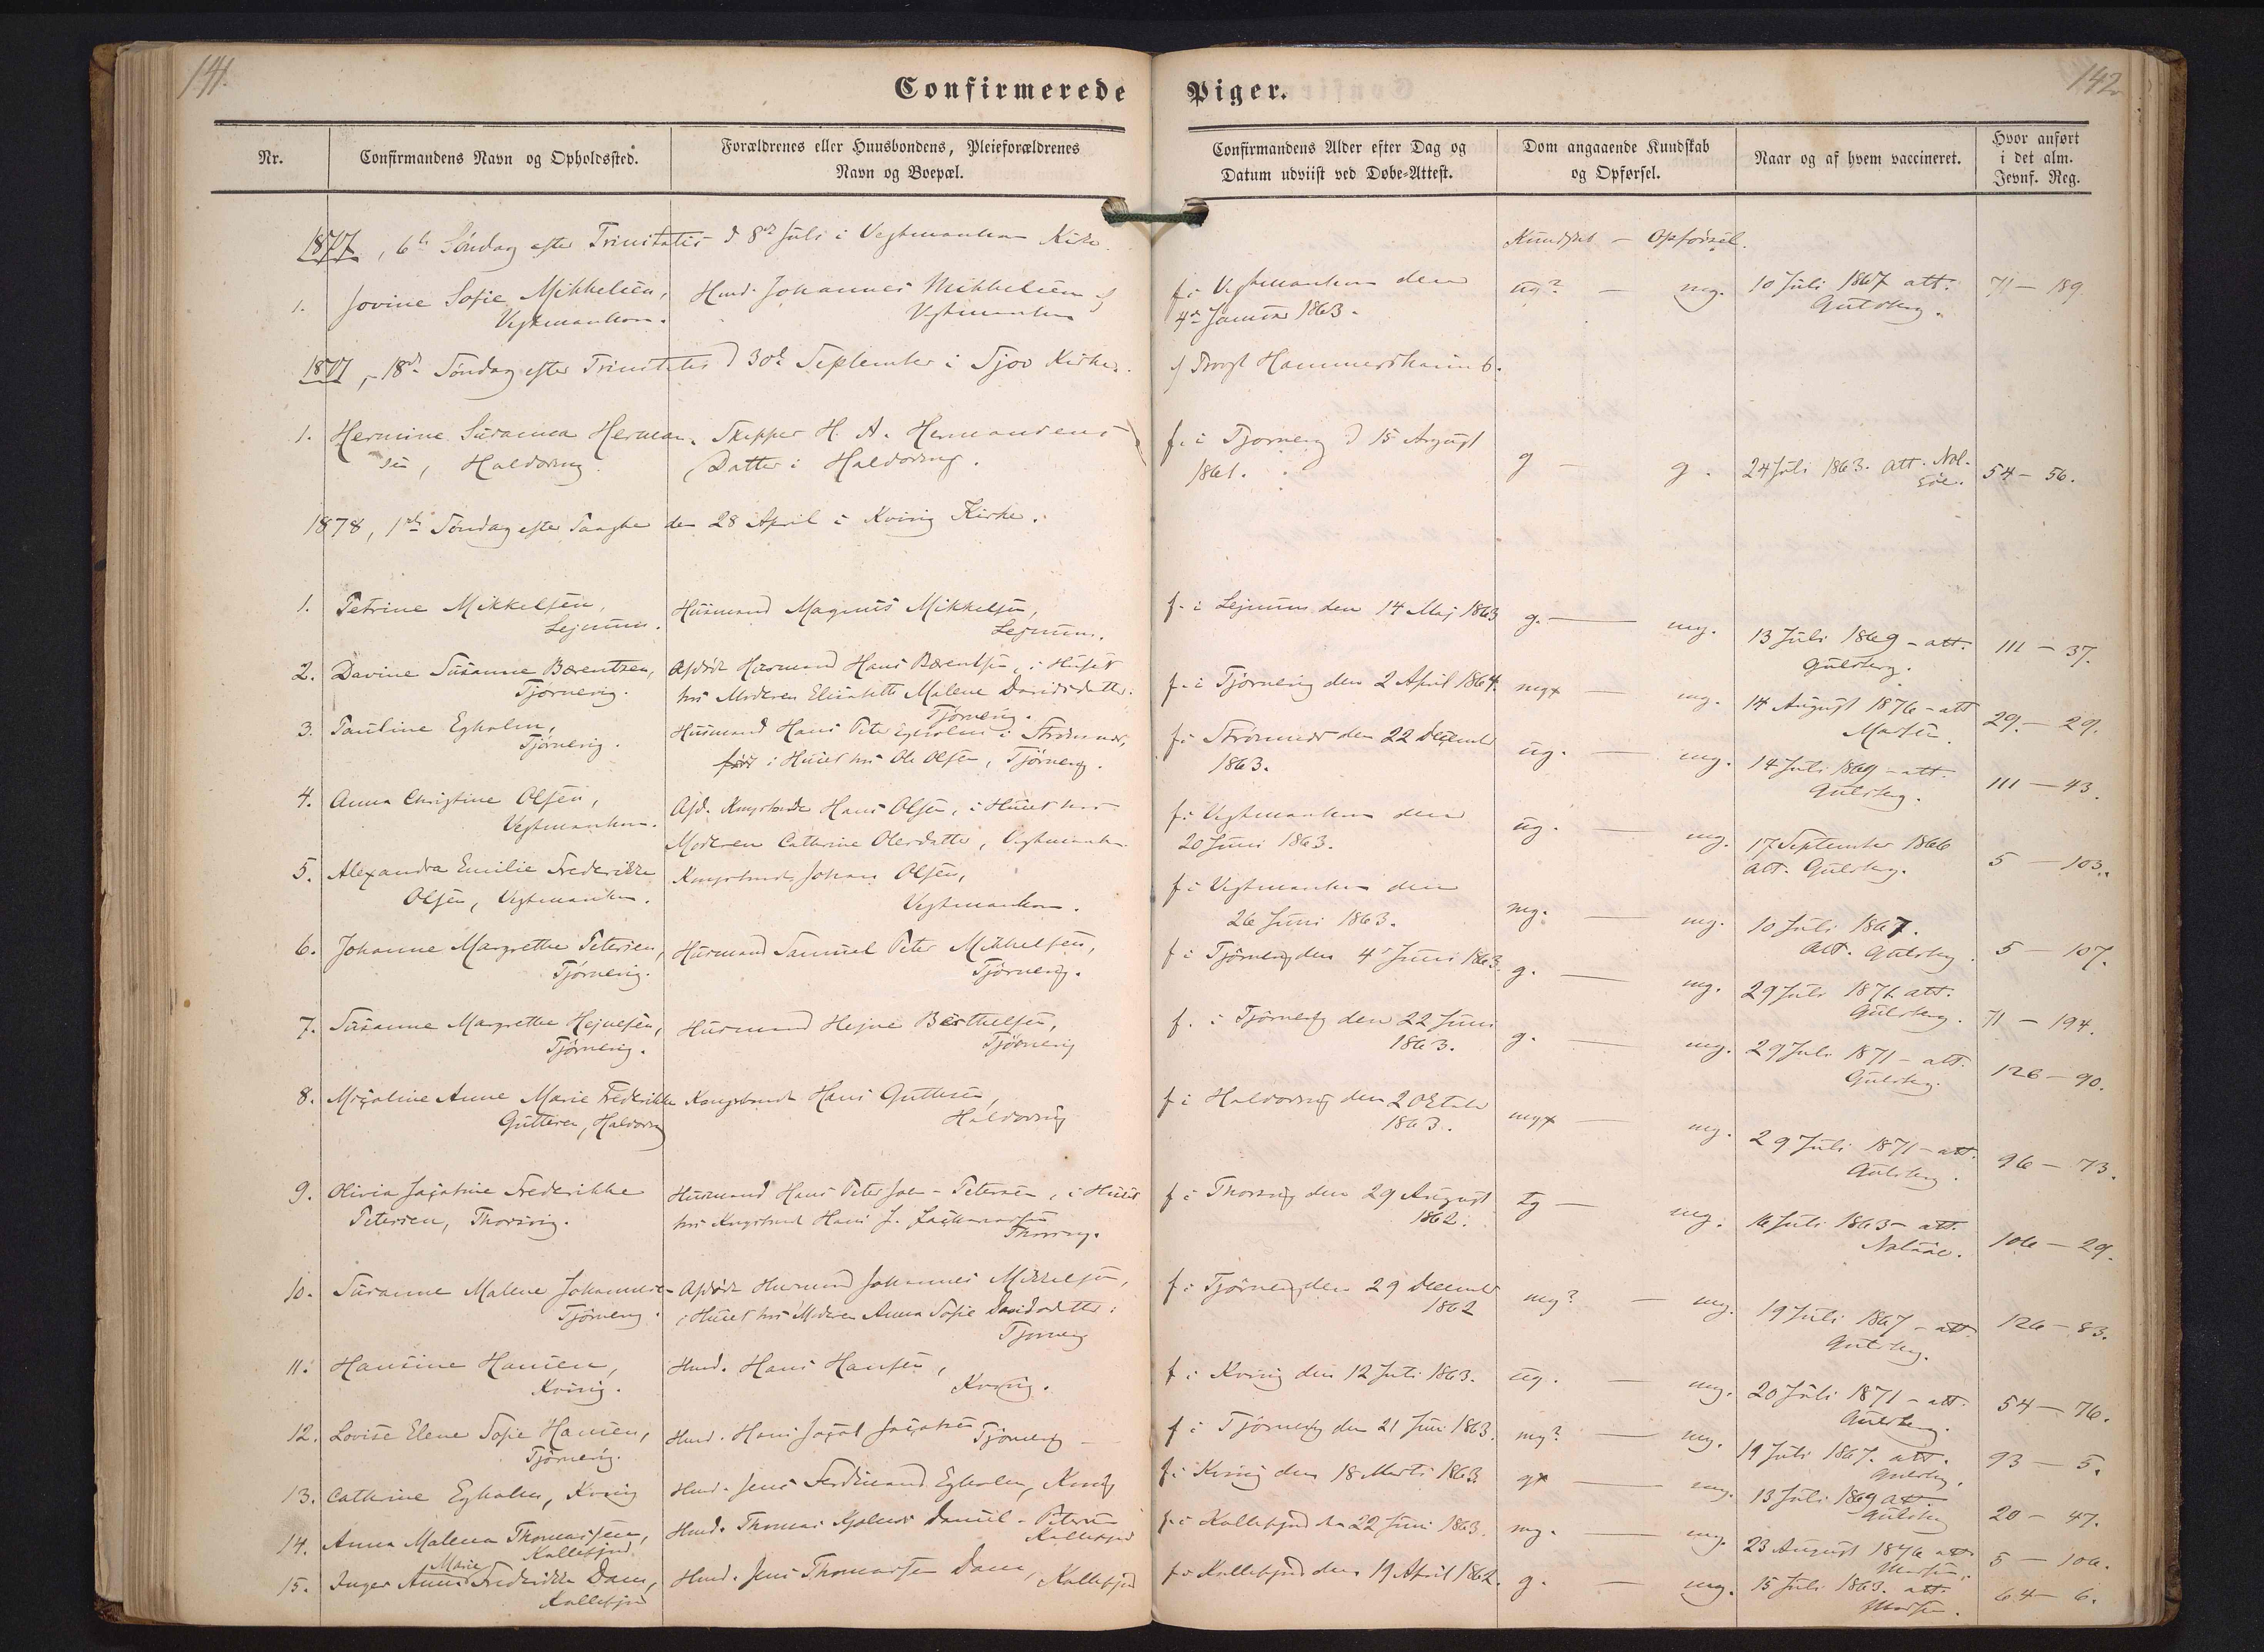 141.
142.
Confirmerede Piger.
Nr.
Confirmandens Navn og Opholdssted.
Forældrenes eller Huusbondens, Pleieforældrenes
Navn og Boepæl.
Confirmandens Alder efter Dag og
Datum udviist ved Døbe-Attest.
Dom angaaende Kundskab
og Opførsel.
Naar og af hvem vaccineret.
Hvor anført
i det alm.
Jevnf. Reg.
1877, 6te Søndag efter Trinitatis d 8de Juli i Vestmanhavn Kirke.
Kundskab - Opførsel.
1. Jovine Sofie Mikkelsen, Husmd. Johannes Mikkelsen af f. i Vestmanhavn den ug? — mg. 10 Juli 1867 att. 71 - 189
Vestmanhavn. Vestmanhavn 4de Januar 1863. Gulsberg.
1877, 18de Søndag efter Trinitatis d 30te September i Sjov Kirke. af Provst Hammershaimb.
1. Hermine Susanna Herman- Skipper H. A. Hermansens f. i Tjørnevig d 15 August g — g. 24 Juli 1863. att. Nol- 54 - 56.
sen, Haldorsvig. Datter i Haldorsvig. 1861. söe.
1878, 1ste Søndag efter Paaske den 28 April i Kvivig Kirke.
1. Petrine Mikkelsen, Husmand Magnus Mikkelsen, f. i Lejnum den 14 Maj 1863 g. — mg. 13 Juli 1869 - att. 111 - 37.
Lejnum. Lejnum. Gulsberg.
2. Davine Susanne Bærentsen, Afdöde Husmand Hans Bærentsen, i Huset f. i Tjörnevig den 2 April 1864. mg+ — mg. 14 August 1876 - att 29 - 29.
Tjörnevig. hos Moderen Elisabeth Malene Davidsdatter. Tjörnevig.
3. Pauline Egholm, Husmand Hans Peter Egholm i Strömnæs, f. i Strömnæs den 22 December ug. — mg. 14 Juli 1869 - att. 111 - 43.
Tjörnevig. i Huset hos Ole Olsen, Tjörnevig. 1863. Gulsberg.
4. Anna Christine Olsen, Afd. Kongsbonde Hans Olsen, i Huset hos f. i Vestmanhavn den ug. — mg. 17 September 1866 5 - 103.
Vestmanhavn. Moderen Cathrine Olesdatter, Vestmanhavn 20 Juni 1863. att. Gulsberg.
5. Alexandra Emilie Frederikke Kongsbonde Johan Olsen, f. i Vestmanhavn den mg. — mg. 10 Juli 1867. 5 - 107.
Olsen, Vestmanhavn. Vestmanhavn. 26 Juni 1863. Att. Gulsberg.
6. Johanne Margrethe Petersen, Husmand Samuel Peter Mikkelsen, f. i Tjörnevig den 4de Juni 1863. g. — mg. 29 Juli 1871 att. 71 - 194.
Tjörnevig. Tjörnevig. Gulsberg.
7. Susanne Margrethe Hejnesen, Husmand Hejne Berthelsen, f. i Tjörnevig den 22 Juni g. — mg. 29 Juli 1871 - att. 126 - 90.
Tjörnevig. Tjörnevig 1863. Gulsberg.
8. Micaline Anne Marie Frederikke Kongsbonde Hans Guttesen, f. i Haldorsvig den 2 Oktober mg+ — mg. 29 Juli 1871 - att. 96 - 73.
Guttesen, Haldorsvig Haldorsvig 1863. Gulsberg.
9. Olivia Jacobine Frederikke Husmand Hans Peter Joen-Petersen, i Huset f. i Thorsvig den 29 August tg — mg. 16 Juli 1863 - att. 106 - 29.
Petersen, Thorsvig. hos Kongsbonde Hans J. Thorsvig. 1862. Nolsöe.
10. Susanne Malene Johannesen Afdöde Husmand Johannes Mikkelsen, f. i Tjörnevig den 29 December mg? — mg. 19 Juli 1867 - att. 126 - 83.
Tjörnevig. i Huset hos Moderen Anna Sofie Davidsdatter i Tjörnevig 1862 Gulsberg.
11. Hansine Hansen, Husmd. Hans Hansen, f. i Kvivig den 12 Juli 1863. ug. — mg. 20 Juli 1871 - att. 54 - 76.
Kvivig. Kvivig. Gulsberg.
12. Lovise Elene Sofie Hansen, Husmd. Hans Jacob Jacobsen Tjörnevig f. i Tjörnevig den 21 Juni 1863. mg? — mg. 19 Juli 1867. att. 93 - 5.
Tjörnevig. Gulsberg.
13. Cathrine Egholm, Kvivig Husmd. Jens Ferdinand Egholm, Kvivig f. i Kvivig den 18 Marts 1863. g+ — mg. 13 Juli 1869 att. 20 - 47.
Gulsberg
14. Anna Malena Thomassen, Husmd. Thomas Daniel-Petersen f. i Kollefjord den 22 Juni 1863. mg. — mg. 23 August 1876 att 5 - 106.
Kollefjord Kollefjord
15. Inger Anne Marie Frederikke Dam, Husmd. Jens Thomassen Dam, Kollefjord f. i Kollefjord den 19 April 1862. g. — mg. 15 Juli 1863. att. 64 - 6.
Kollefjord